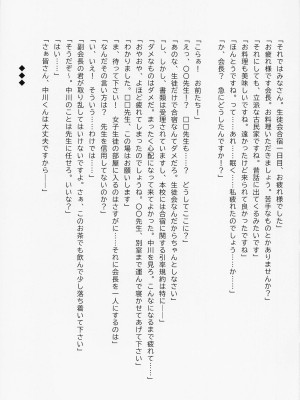 「それではみなさん。生徒会合宿一日目、お疲れ様でした」
「お疲れ様です会長。お料理いただきましょう。苦手なものとかありませんか?」
「それにしても、立派な古民家ですね。昔話に出てくるみたいです」
「お料理も美味しいですね。遠かったけど来られて良かったですね」
「ほんとうですね。って……あれ……眠く……私疲れたのでしょう……か……」
「か、会長？ 急にどうしたんですか――」
「こらぁー お前たち！」
「えっ、〇〇先生ー？ □□先生も……？ どうしてここに？」
「あのな、生徒だけで合宿なんてダメだろ。生徒会なんだからちゃんとしなさい」
「し、しかし、書類は受理されていますし、本校には合宿に関する引率規約は特に――」
「ダメなものはダメだ。まったく心配になって来てよかった。中川を見ろ。こんなになるまで疲れて……」
「おやおや、よほど疲れてしまったのでしょうね。〇〇先生、別室まで運んで寝かせてあげて下さい」
「わかりました。□□先生、この場はお願いします」
「ま、待って下さい！ 女子生徒の部屋に入るのはさすがに……それに会長を一人にするのは」
「なんだその言い方は？ 先生を信用してないのか？」
「い、いえ！ そういう……わけでは……」
「副会長の君が取り乱してはいけないですよ。さぁ。このお茶でも飲んで少し落ち着いて下さい」
「そうだぞ〜。中川のことは先生に任せろ。いいな？」
「はい……」
「さぁ皆さん、中川くんは大丈夫ですから――」
◆◆◆